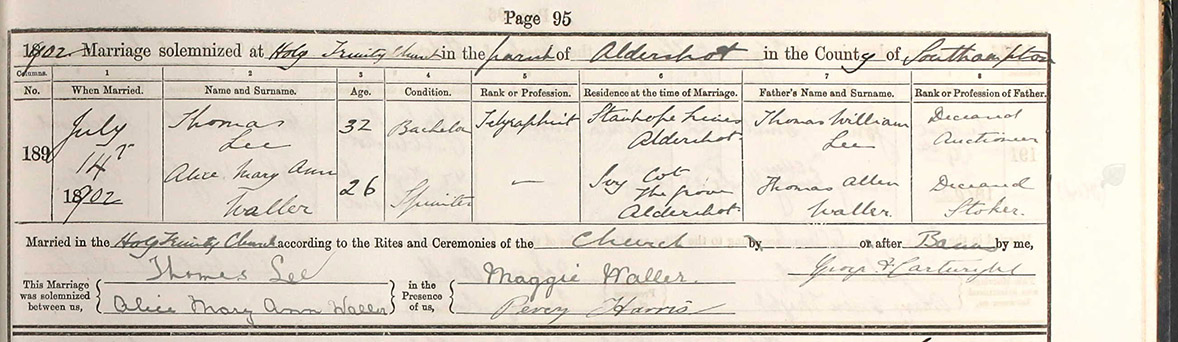 Page 95
1902. Marriage solemnized at Holy Trinity Church in the parish of Aldershot in the County of Southampton
Columns. 1 2 3 4 5 6 7 8
No. When Married. Name and Surname. Age. Condition. Rank or Profession. Residence at the time of Marriage. Father's Name and Surname. Rank or Profession of Father.
189
July
14th
1902
Thomas
Lee
32
Bachelor
Telegraphist
Stanhope Lines
Aldershot
Thomas William
Lee
Deceased
Auctioneer
Alice Mary Ann
Waller
26
Spinster
—
Ivy Cot
The Grove
Aldershot
Thomas Allen
Waller.
Deceased
Stoker.
Married in the Holy Trinity Church according to the Rites and Ceremonies of the Church by or after Banns by me,
This Marriage was solemnized between us,
Thomas Lee
Alice Mary Ann Waller
in the Presence of us,
Maggie Waller.
Percy Harris
Cartwright